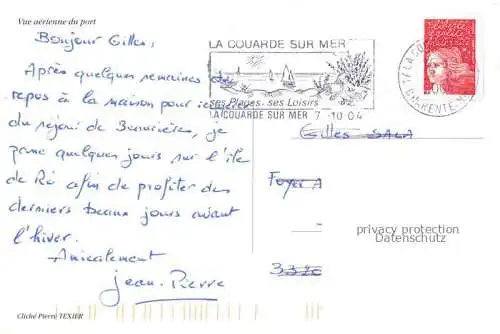 Vue aérienne du port
Bonjour Gilles,
Après quelques semaines de
repos à la maison pour
du séjour de, je
passe quelques jours sur l'île
de Ré afin de profiter des
derniers beaux jours avant
l'hiver.
Amicalement
Jean-Pierre
Cliché Pierre TEXIER
LA COUARDE SUR MER
ses Plages - ses Loisirs
LA COUARDE SUR MER 7-10 04
17 LA CO
CHARENTE M
liberté
égalité
fraternité
Gilles SALA
Foyer A
privacy protection
Datenschutz
33